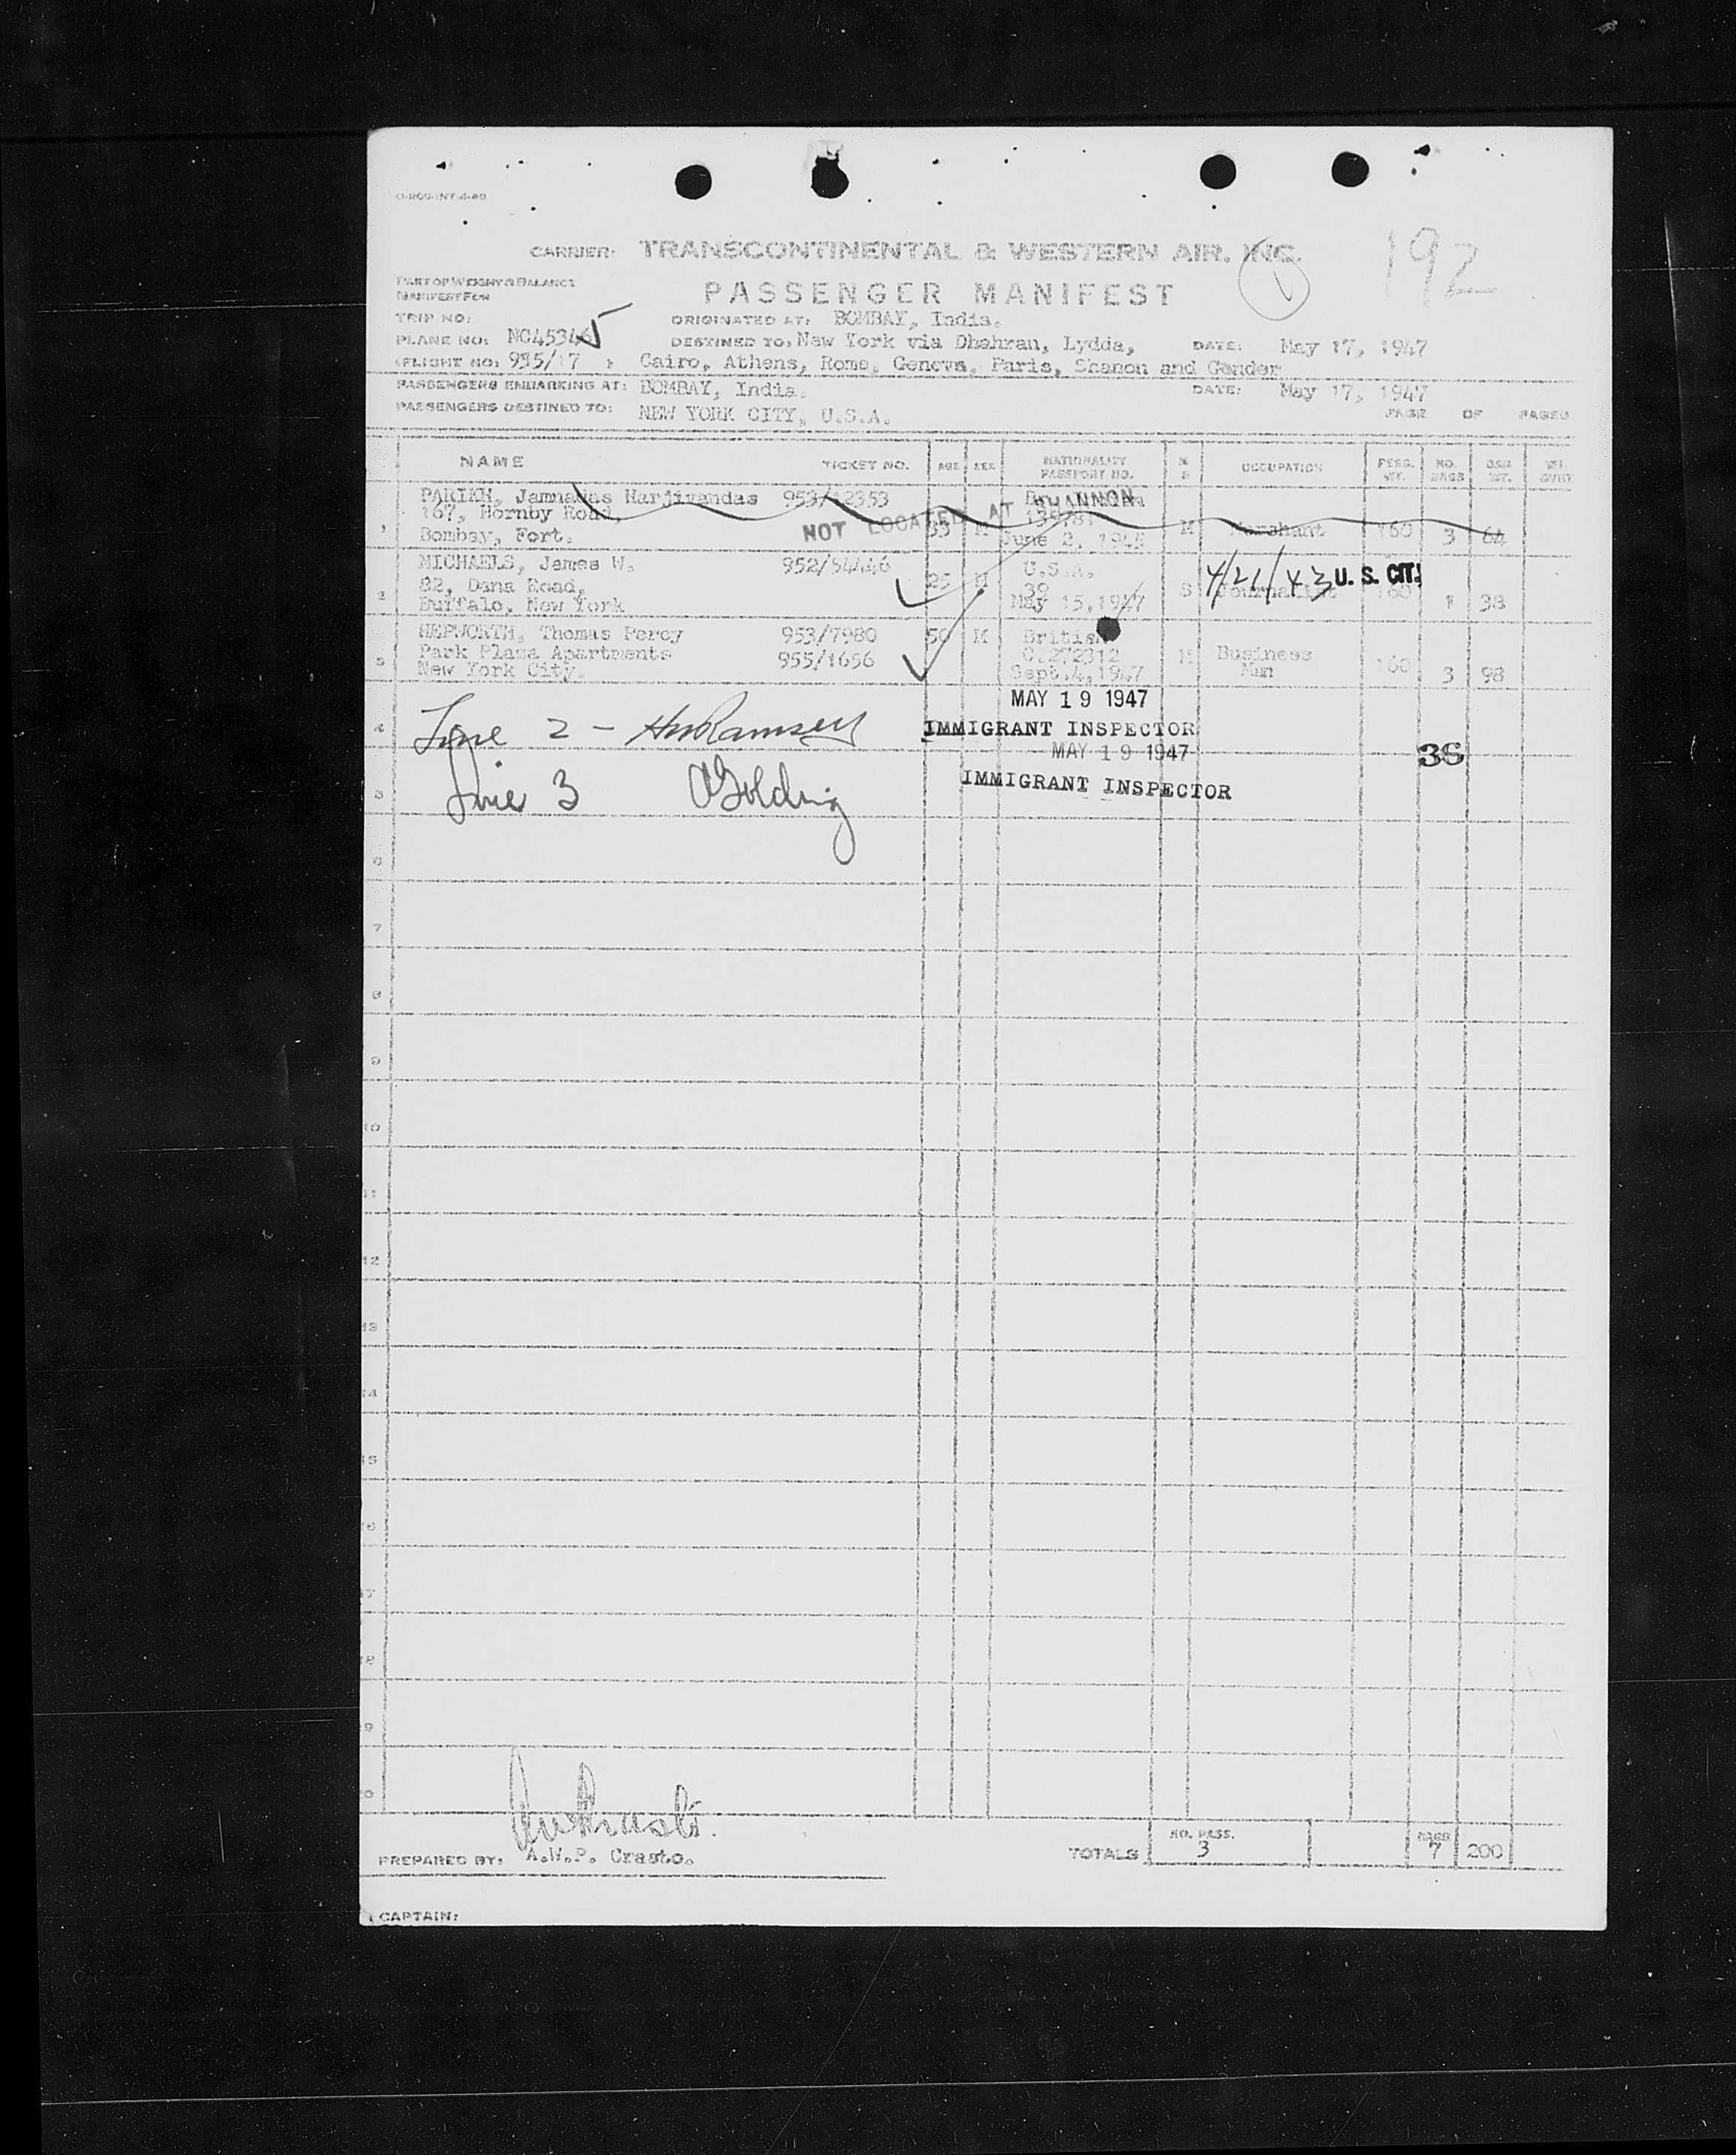 192
CARRIER: TRANSCONTINENTAL & WESTERN AIR. INC.
PART OF WEIGHT & BALANCE
MANIFEST FOR
PASSENGER MANIFEST
TRIP NO:
ORIGINATED AT: BOMBAY, India.
PLANE NO: NC45346
DESTINED TO: New York via Dhahran, Lydda, DATE: May 17, 1947
(FLIGHT NO: 955/17 ) Cairo, Athens, Rome, Geneva, Paris, Shanon and Gander
PASSENGERS EMBARKING AT: BOMBAY, India. DATE: May 17, 1947
PASSENGERS DESTINED TO: NEW YORK CITY, U.S.A. PAGE OF PAGES
NAME TICKET NO. AGE SEX NATIONALITY PASSPORT NO. M S OCCUPATION PERS. WT. NO. BAGS BAG WT.
PARIKH, Jamnadas Harjivandas 953/12353
167, Hornby Road,
NOT LOCATED AT SHANNON
1 Bombay, Fort. M June 2, M Merchant 160 3 64
MICHAELS, James W. 952/54446 U.S.A.
82, Dana Road, 25 M 39 S Journalist 160 4/21/43 U. S. CIT.
2 Buffalo, New York May 15, 1947 1 38
HEPWORTH, Thomas Percy 953/7980 50 M British
Park Plaza Apartments 955/1656 C.272312 M Business Man 160
3 New York City. Sept.4,1947 3 98
MAY 19 1947
4 Line 2 - HRamsey IMMIGRANT INSPECTOR
MAY 19 1947 36
5 Line 3 AGolding IMMIGRANT INSPECTOR
6
7
8
9
10
11
12
13
14
15
16
17
18
19
20
PREPARED BY: A.W.P. Crasto. TOTALS NO. PASS. 3 BAGS 7 200
CAPTAIN: